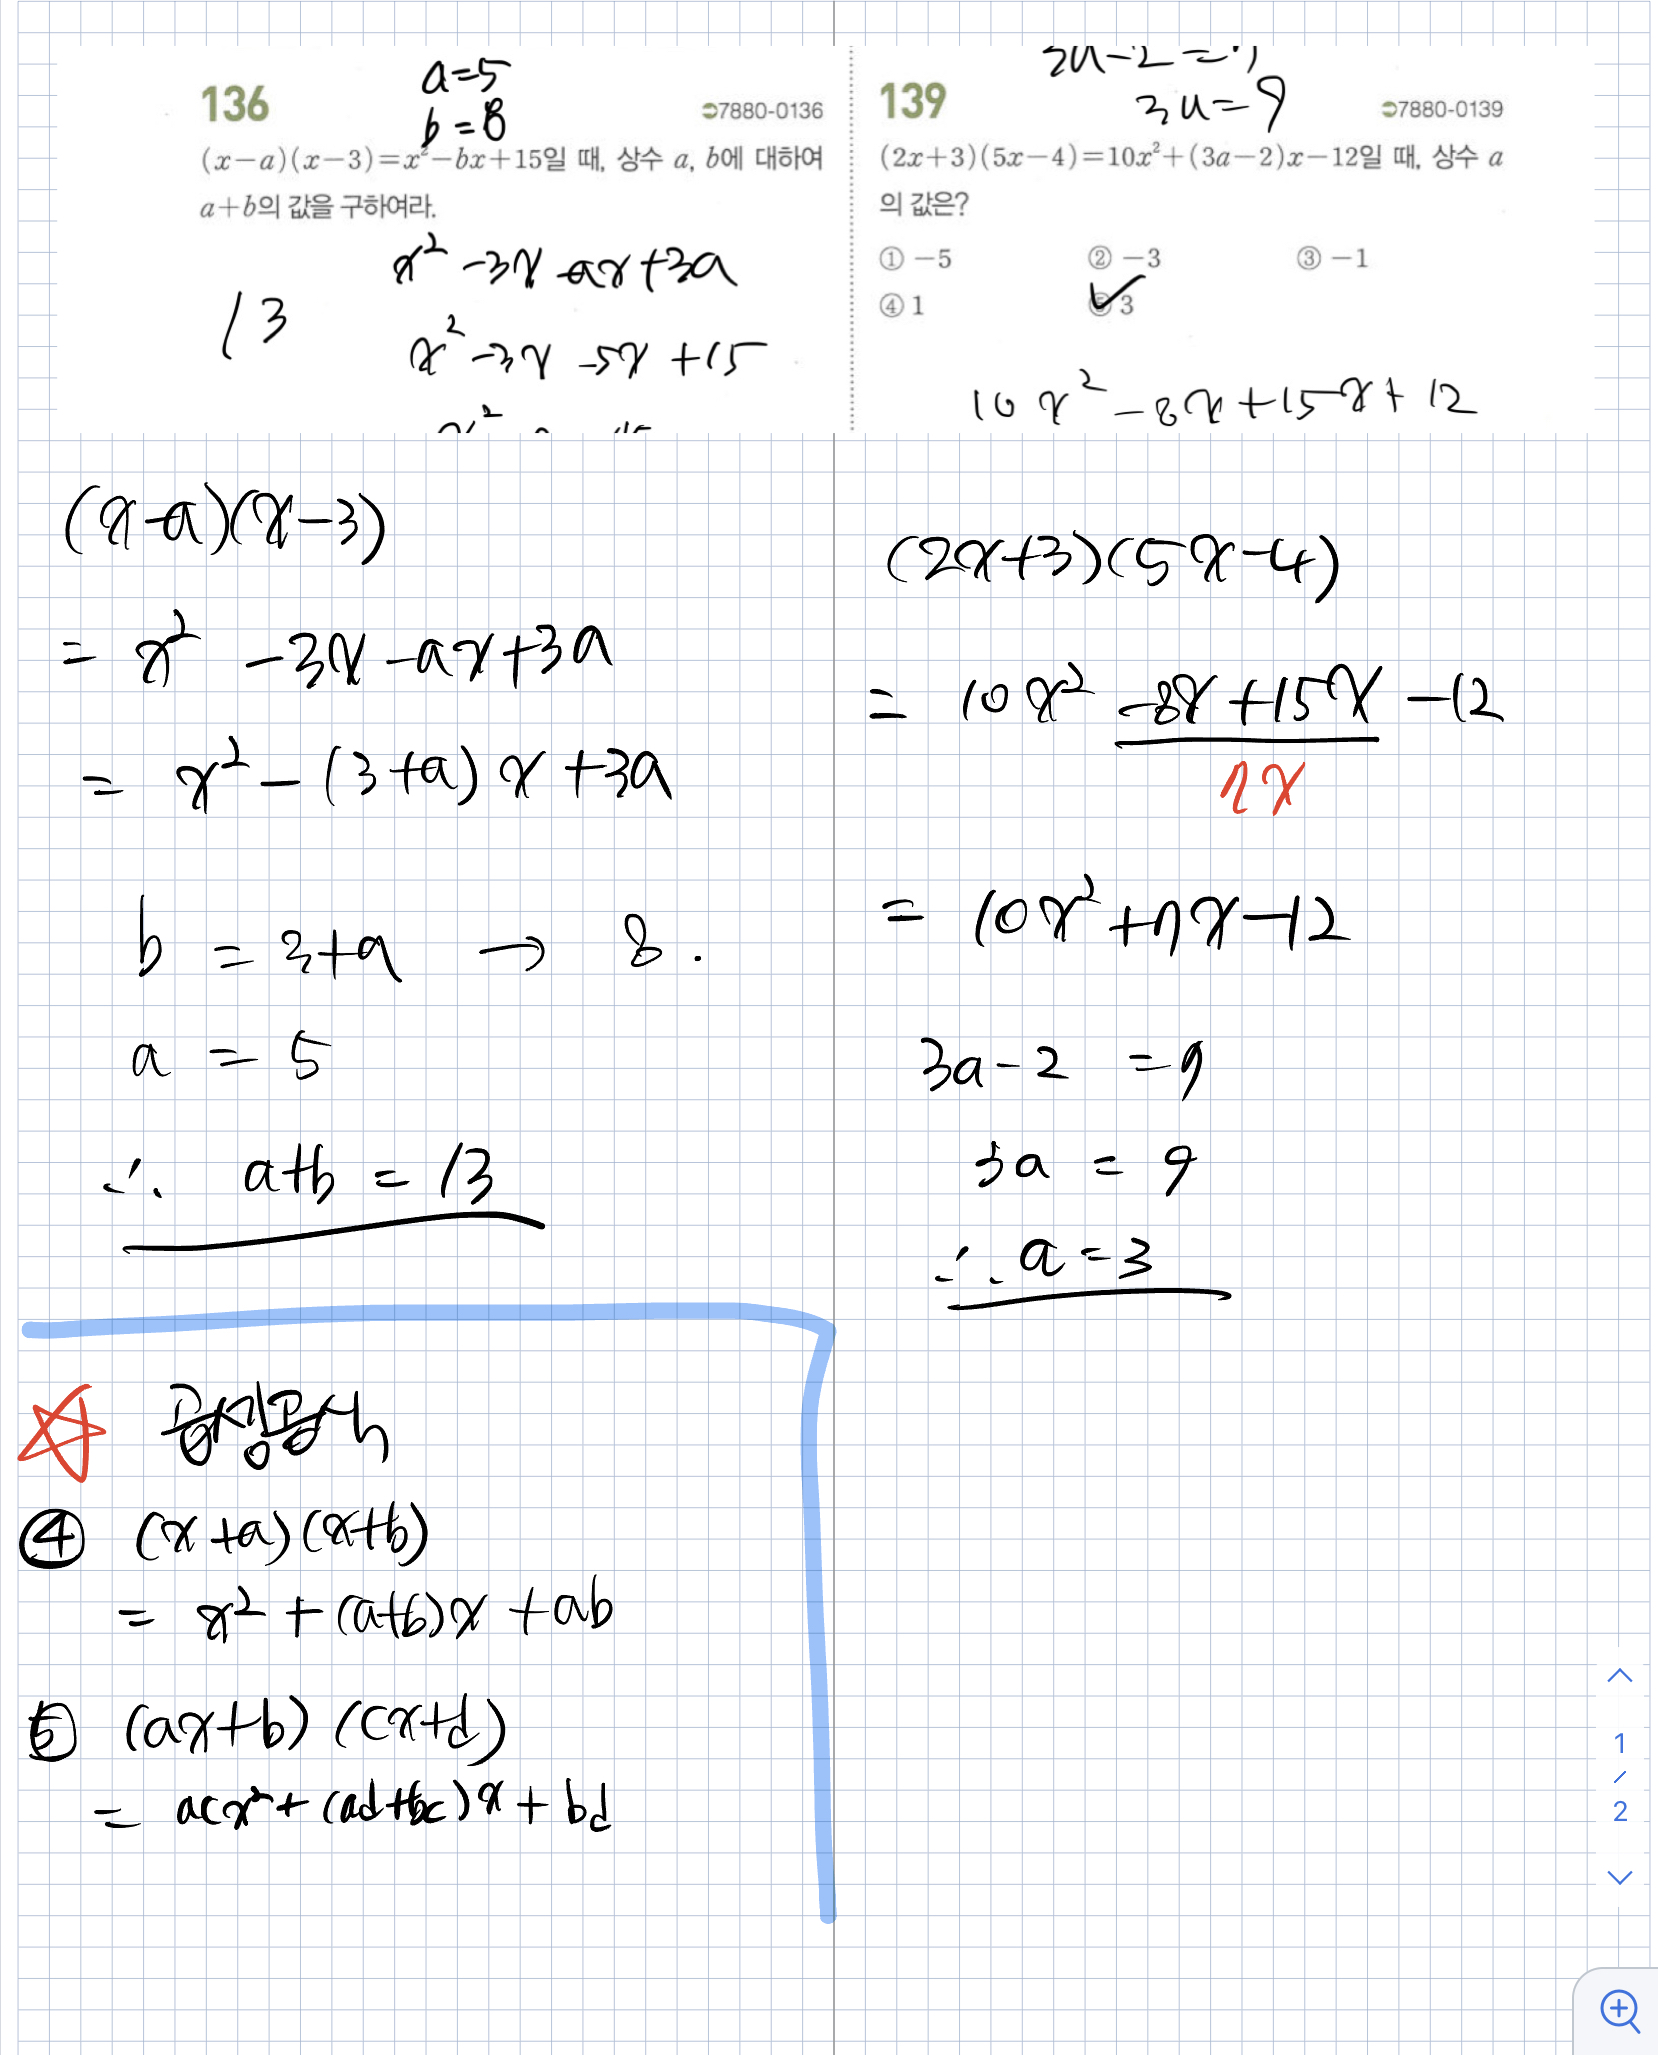 136
a=5
b=8
7880-0136
(x-a)(x-3)=x²-bx+15일 때, 상수 a, b에 대하여
a+b의 값을 구하여라.
x² -3x -ax+3a
13
x² -3x -5x +15
139
3a=9
7880-0139
(2x+3)(5x-4)=10x²+(3a-2)x-12일 때, 상수 a
의 값은?
① -5 ② -3 ③ -1
④ 1 ⑤ 3
10x² -8x+15x+12
(x-a)(x-3)
= x² -3x-ax+3a
= x²-(3+a)x+3a
b = 3+a → 8.
a = 5
∴ a+b = 13
☆ 곱셈공식
④ (x+a)(x+b)
= x²+(a+b)x+ab
⑤ (ax+b)(cx+d)
= acx²+(ad+bc)x+bd
(2x+3)(5x-4)
= 10x² -8x+15x -12
7x
= 10x²+7x-12
3a-2 =7
3a = 9
∴ a=3
1
/
2